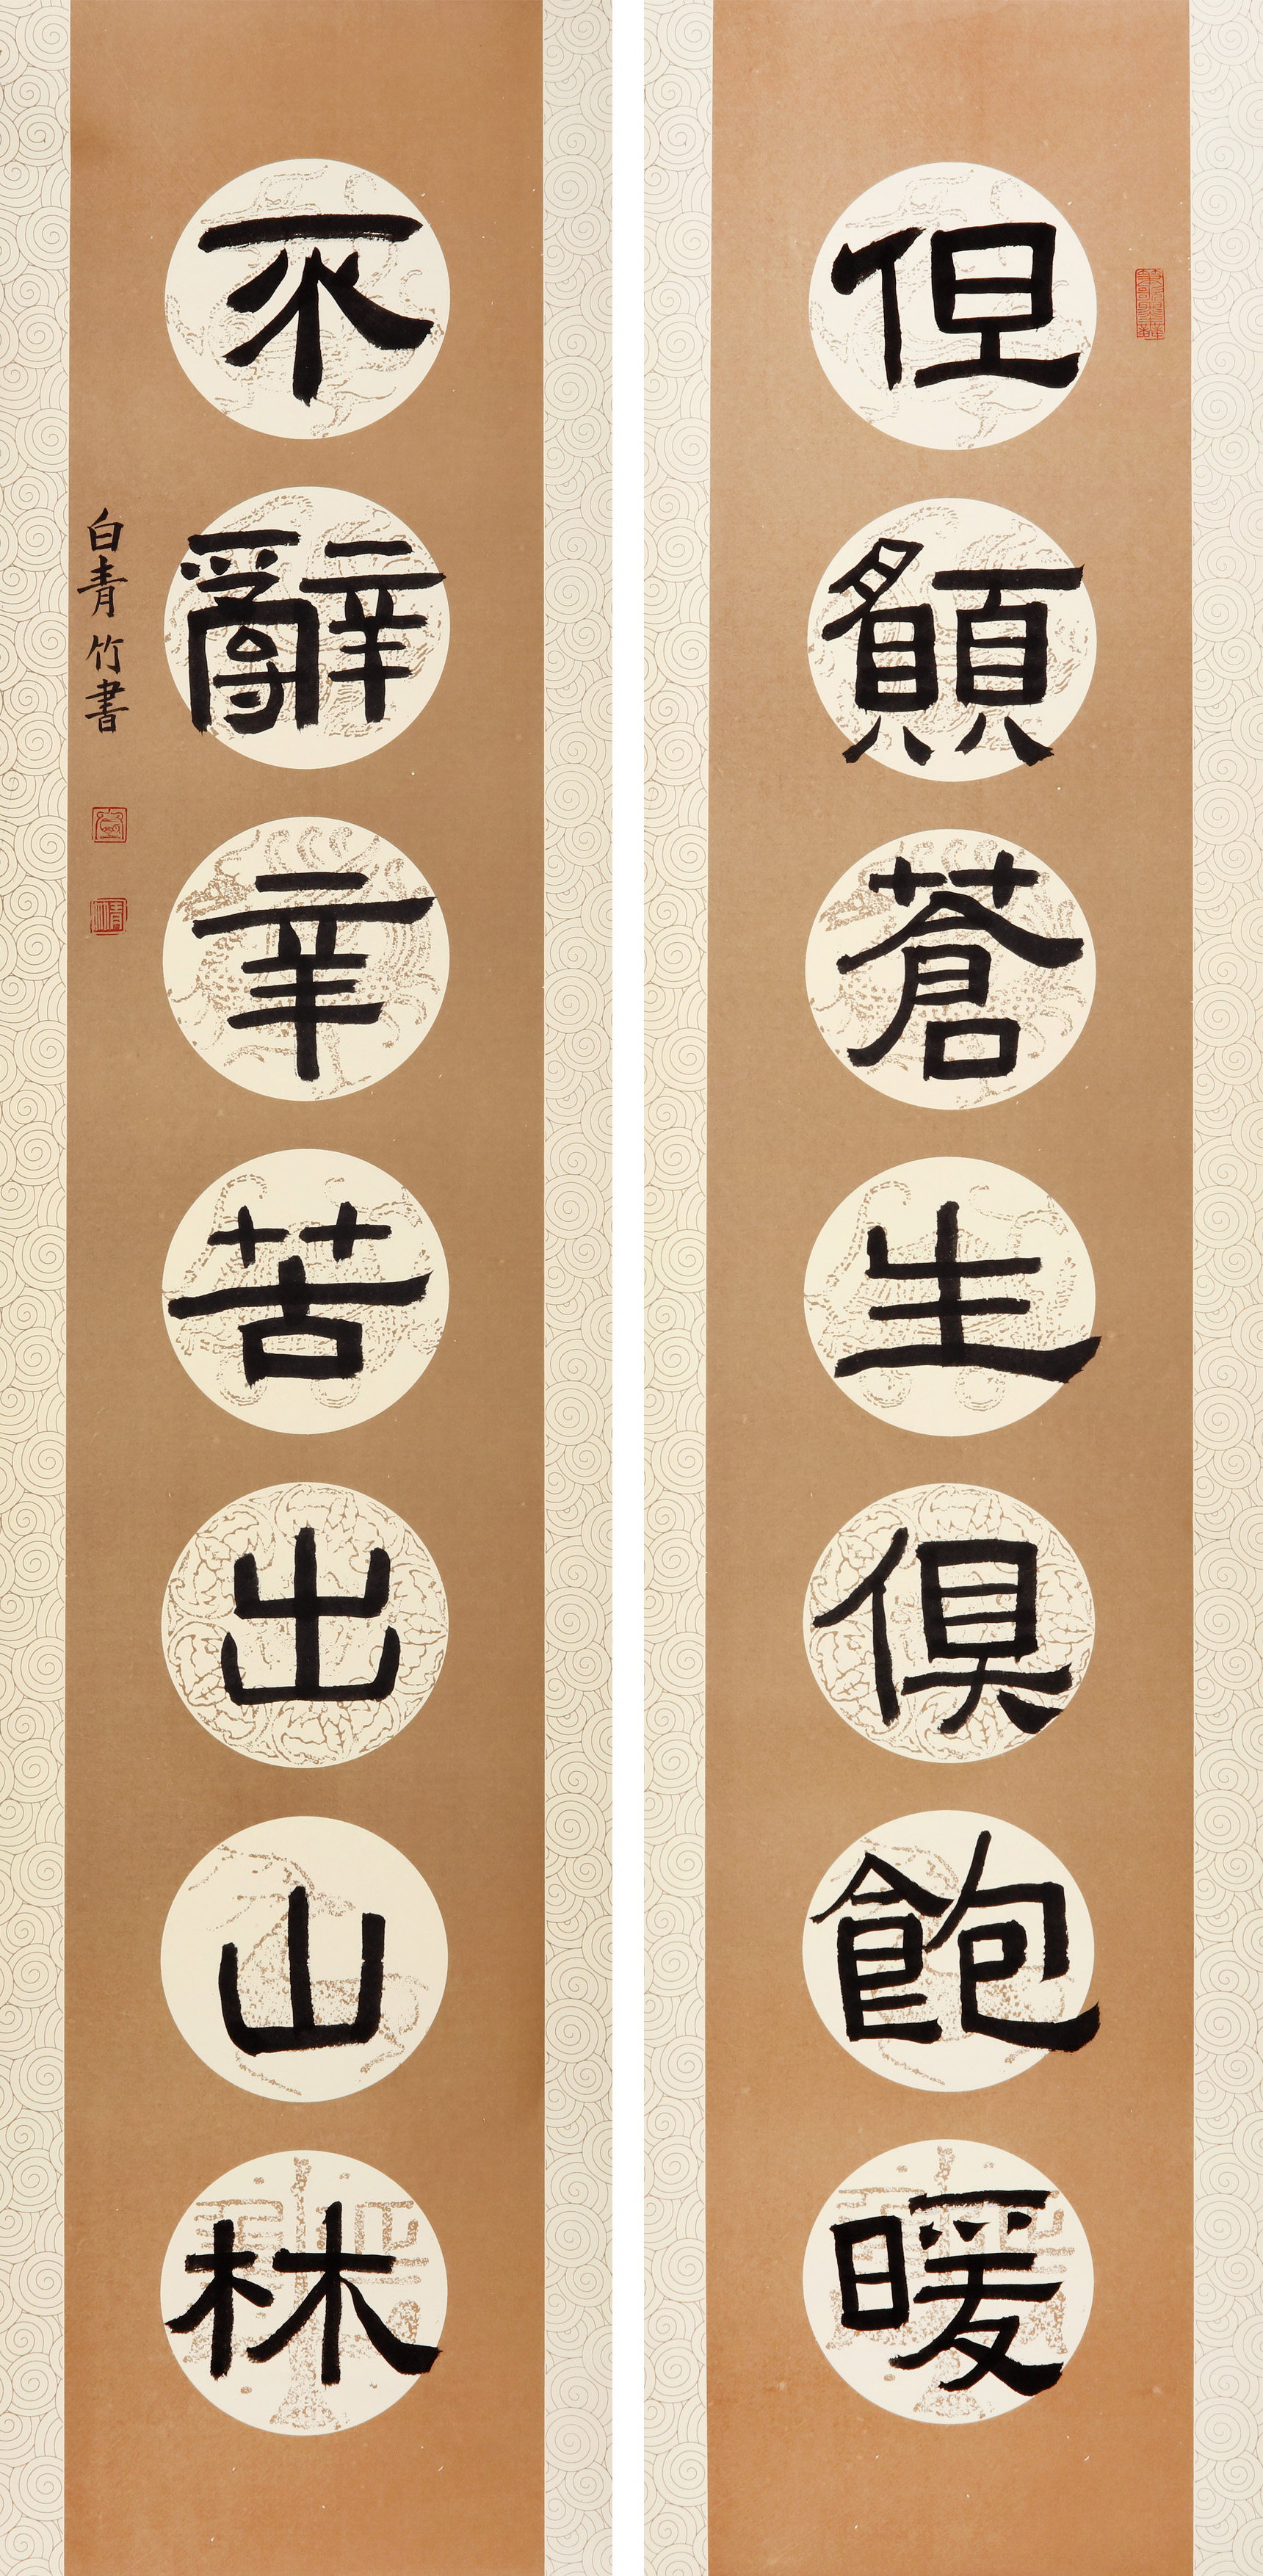 但願蒼生俱飽暖
不辭辛苦出山林
白青竹書